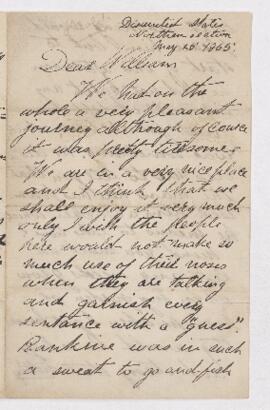 Disunited States
Northern section
May 26 1865.
Dear William
We had on the
whole a very pleasant
journey although of course
it was pretty tiresome.
We are in a very nice place
and I think that we
shall enjoy it very much
only I wish the people
here would not make so
much use of their noses
when they are talking
and garnish every
sentence with a "guess".
Rankine was in such
a sweat to go and fish